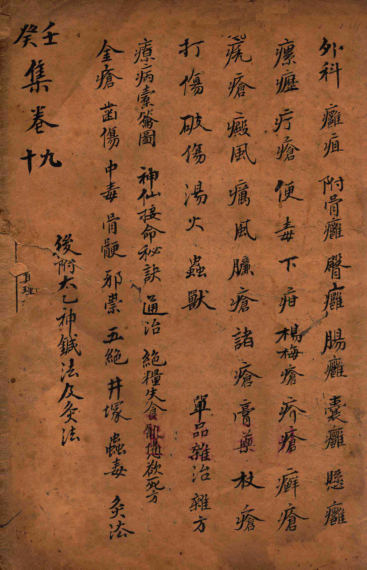 外科 癰疽 附骨癰 臀癰 腸癰 囊癰 懸癰
瘰癧 疔瘡 便毒 下疳 楊梅瘡 疥瘡 癬瘡
疣瘡 癜風 癘風 臁瘡 諸瘡 膏藥 杖瘡
打傷 破傷 湯火 蟲獸 單品雜治 雜方
療病素籥圖 神仙接命秘訣 通治 絕糧失食飢憊欲死方
金瘡 齒傷 中毒 骨骾 邪祟 五絕 井塚 蟲毒 灸法
後附太乙神鍼法及灸法
壬癸集卷九十